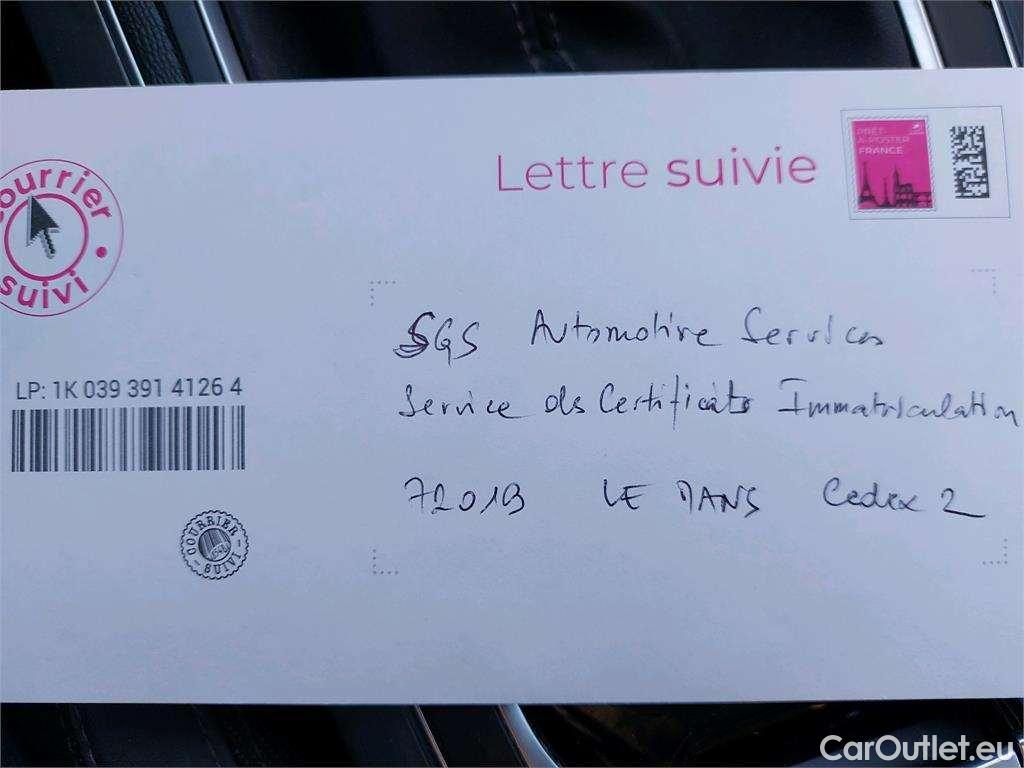 Lettre suivie
PRÊT-
À-POSTER
FRANCE
courrier
suivi
SGS Automotive Services
Service des Certificats Immatriculation
72019 LE MANS Cedex 2
LP: 1K 039 391 4126 4
COURRIER
SUIVI
CarOutlet.eu